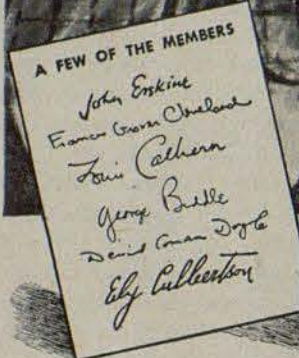 A FEW OF THE MEMBERS
John Erskine
Francis Grover Cleveland
Louis Calhern
George Biddle
Denis Conan Doyle
Ely Culbertson